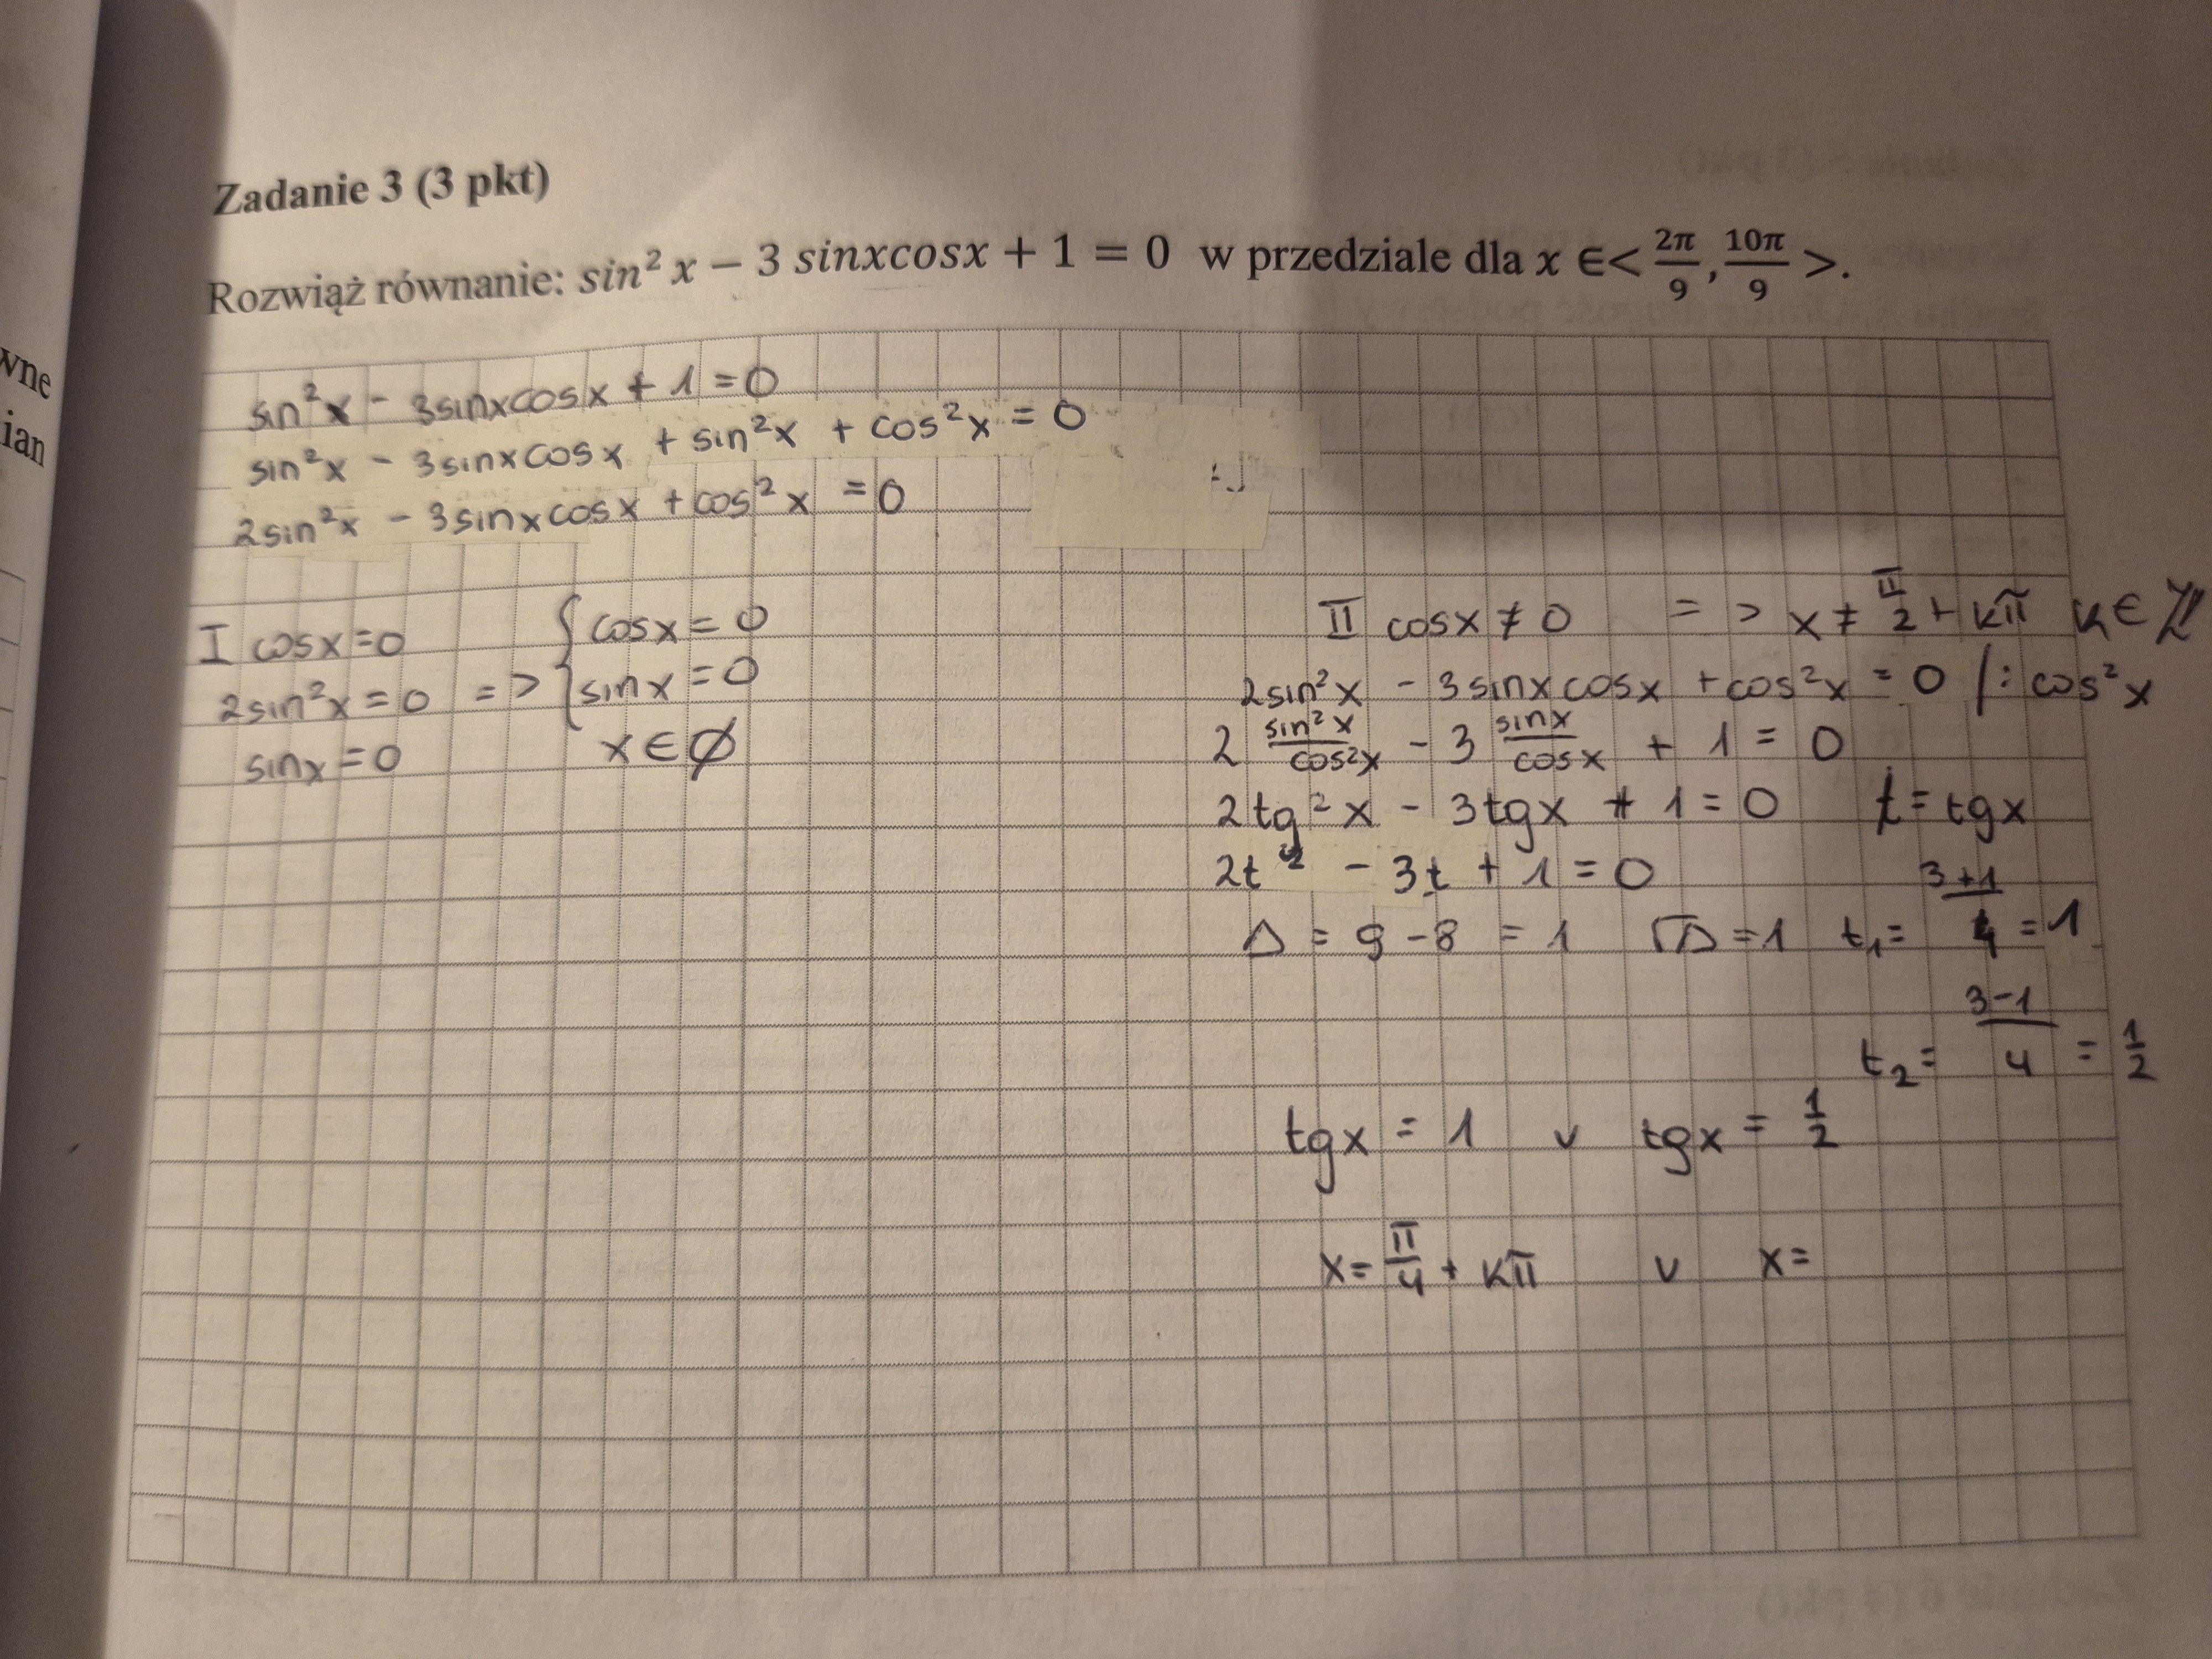 wne
ian
Zadanie 3 (3 pkt)
Rozwiąż równanie: sin² x − 3 sinxcosx + 1 = 0 w przedziale dla x ∈< 2π/9 , 10π/9 >.
sin²x - 3sinxcosx + 1 = 0
sin²x - 3sinxcosx + sin²x + cos²x = 0
2sin²x - 3sinxcosx + cos²x = 0
I cosx = 0
2sin²x = 0 => { cosx = 0
sinx = 0
sinx = 0
x ∈ ∅
II cosx ≠ 0 => x ≠ π/2 + kπ k ∈ ℤ
2sin²x - 3sinxcosx + cos²x = 0 /: cos²x
2 sin²x/cos²x - 3 sinx/cosx + 1 = 0
2tg²x - 3tgx + 1 = 0 t = tgx
2t² - 3t + 1 = 0
Δ = 9 - 8 = 1 √Δ = 1 t₁ = 3+1/4 = 1
t₂ = 3-1/4 = 1/2
tgx = 1 v tgx = 1/2
x = π/4 + kπ v x =